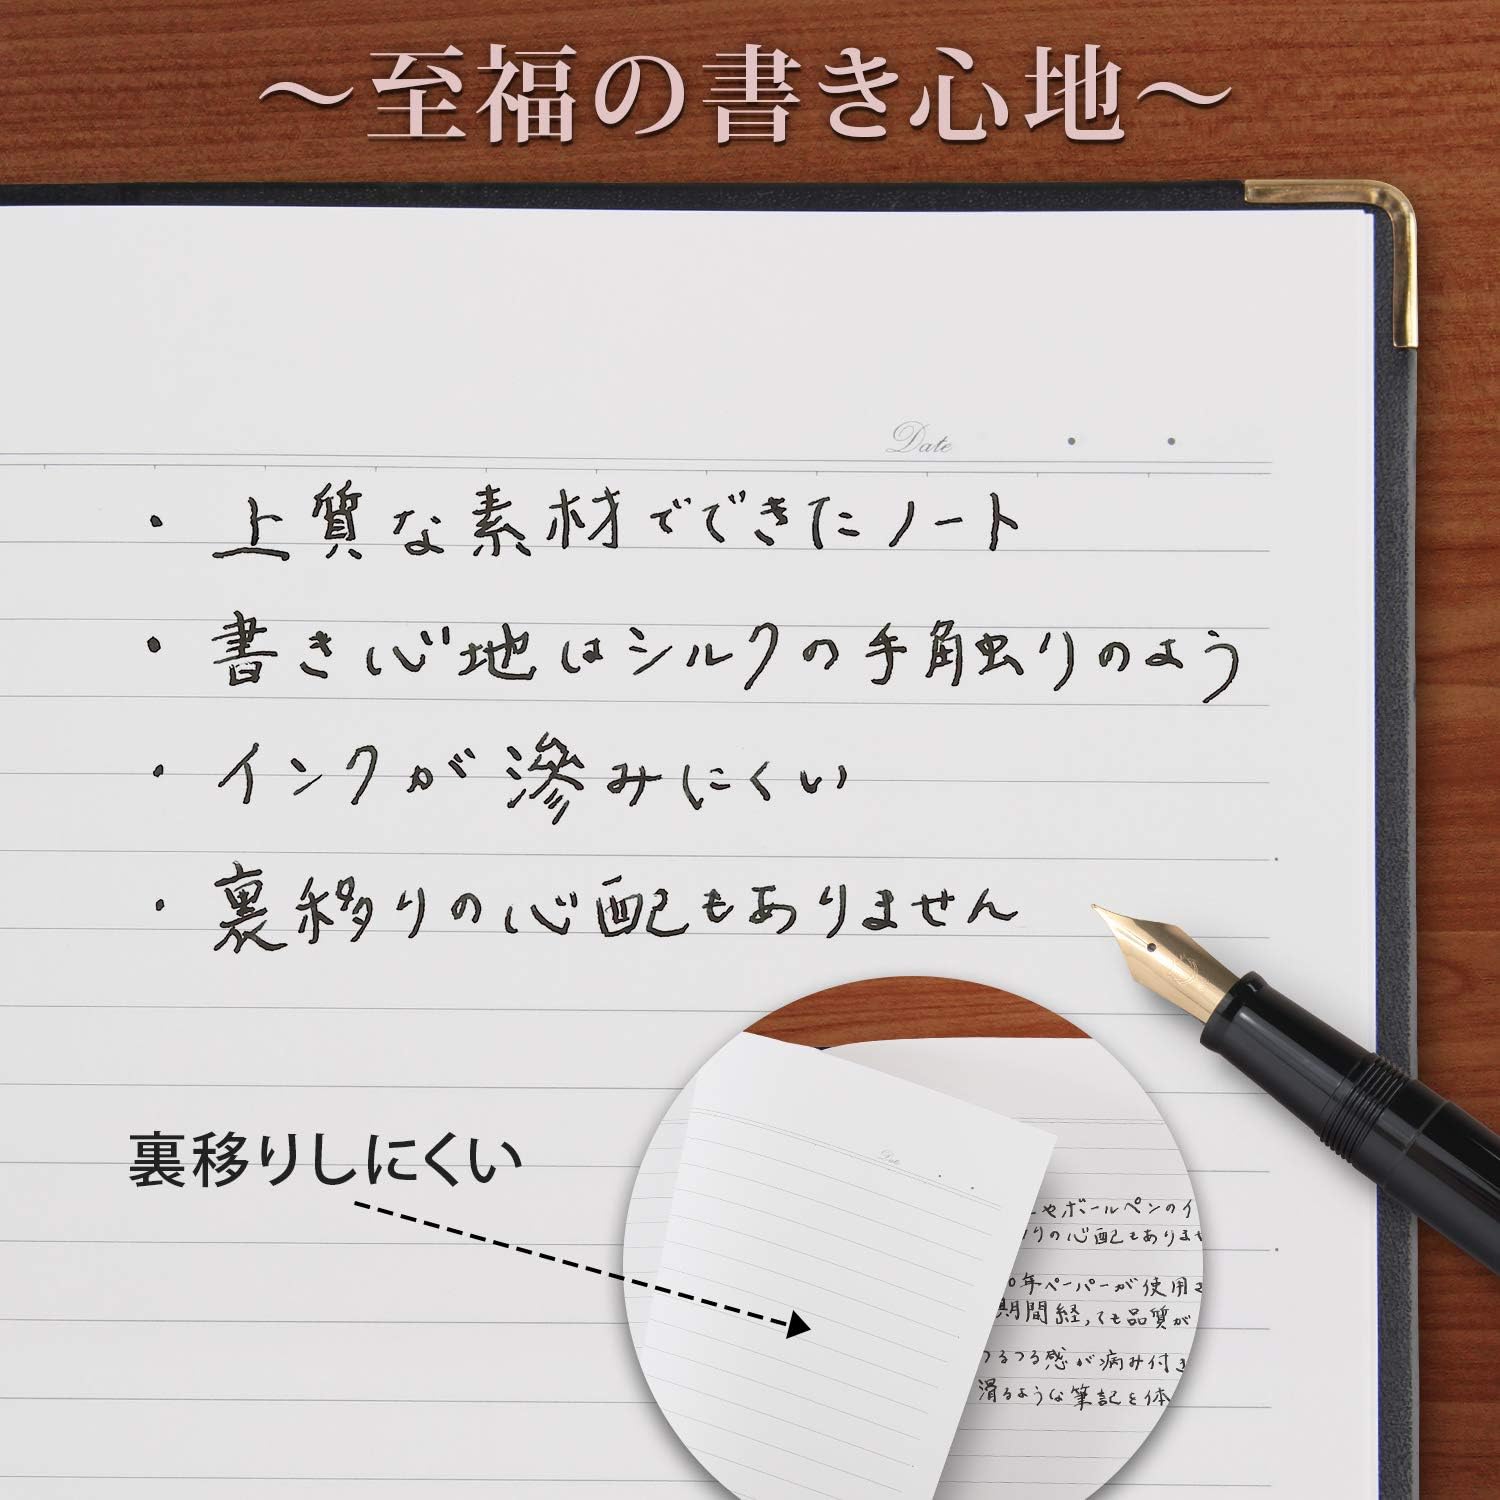 ～至福の書き心地～
Date
・上質な素材でできたノート
・書き心地はシルクの手角虫りのよう
・インクが滲みにくい
・裏移りの心配もありません
裏移りしにくい
Date
やボールペンのイ
りの心配もありませ
0年ペーパーが使用さ
期間経っても品質が
つるつる感が病み付き
滑るような筆記を体